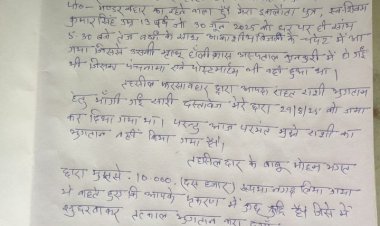 पो०- भण्डरबहार का रहने वाला हूँ। मेरा इकलौता पुत्र,
कुमार सिंह उम्र 13 वर्ष जो 30 जून 2025 को घर पर ही शाम
5-30 बजे तेज वर्षा के साथ आकाशीय बिजली के चपेट में आ
गया जिससे उसकी मृत्यु होली क्रास अस्पताल कुनकुरी में हो गई
थी जिसका पंचनामा एवं पोस्टमार्टम भी वहीं हुआ था।
तहसील फरसाबहार द्वारा आपदा राहत राशी भुगतान
हेतु माँगी गई सारी दस्तावेज मेरे द्वारा 29/8/25 को जमा
कर दिया गया था। परन्तु आज पर्यन्त मुझे राशी का
भुगतान नहीं किया गया है।
तहसीलदार के बाबू मोहन भगत
द्वारा मुझसे 10.000. (दस हजार) रूपया नगद लिया गया
ये कहते हुए कि आपके प्रकरण में कुछ त्रुटि है। जिसे में
सुधरवाकर तत्काल भुगतान करा